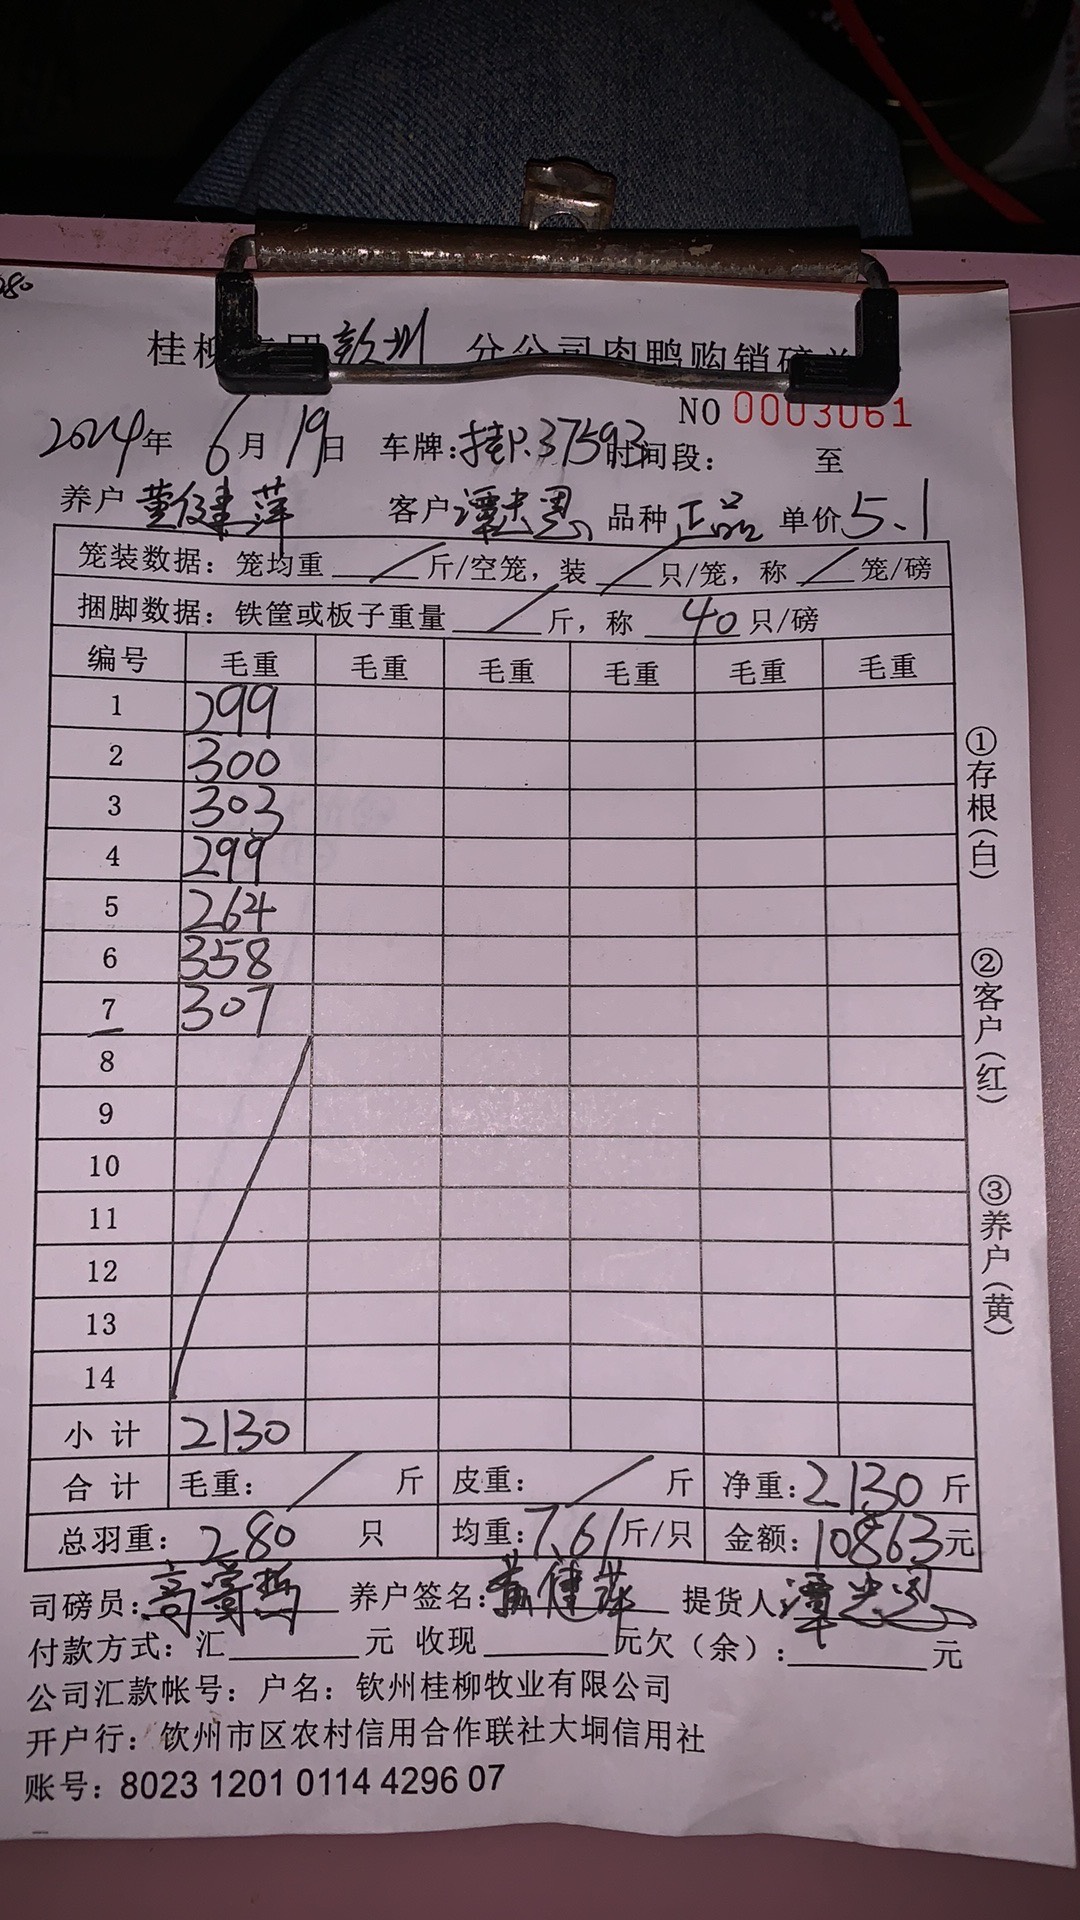 280
桂柳 钦州 分公司肉鸭购销磅单
NO 0003061
2024年 6月 19日 车牌:桂P.37593 时间段: 至
养户 黄健萍 客户 谭忠恩 品种 正品 单价 5.1
笼装数据: 笼均重 / 斤/空笼, 装 / 只/笼, 称 / 笼/磅
捆脚数据: 铁筐或板子重量 / 斤, 称 40 只/磅
编号 毛重 毛重 毛重 毛重 毛重 毛重
1 299
2 300
3 303
4 299
5 264
6 358
7 307
8
9
10
11
12
13
14
小 计 2130
合 计 毛重: / 斤 皮重: / 斤 净重: 2130 斤
总羽重: 280 只 均重: 7.61 斤/只 金额: 10863 元
司磅员: 养户签名: 黄健萍 提货人 谭忠恩
付款方式: 汇 元 收现 元欠(余): 元
公司汇款帐号: 户名: 钦州桂柳牧业有限公司
开户行: 钦州市区农村信用合作联社大垌信用社
账号: 8023 1201 0114 4296 07
①存根(白)
②客户(红)
③养户(黄)